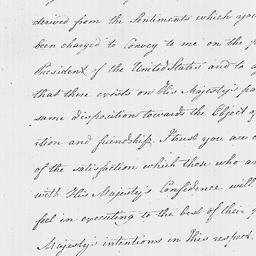 derived from the Sentiments which you
been charged to Convey to me on the
President of the United States and to a
that there exists on His Majesty's pa
same disposition towards the Object of
ition and friendship. I trust you are
of the satisfaction which those who a
with His Majesty's Confidence will
feel in executing to the best of their
Majesty's intentions in this respect.